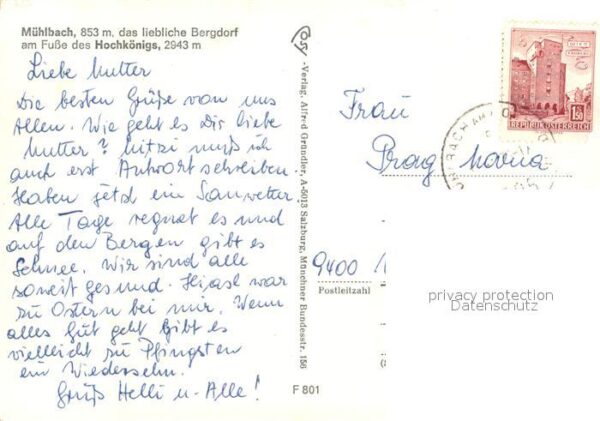 Mühlbach, 853 m, das liebliche Bergdorf
am Fuße des Hochkönigs, 2943 m
Liebe Mutter
Die besten Grüße von uns
Allen. Wie geht es Dir liebe
Mutter? Mitzi muß ich
auch erst Antwort schreiben.
Haben jetzt ein Sauwetter.
Alle Tage regnet es und
auf den Bergen gibt es
Schnee. Wir sind alle
soweit gesund. war
zu Ostern bei mir. Wenn
alles Gut geht Gibt es
vielleicht zu Pfingsten
ein Wiedersehn.
Gruß Helli u. Alle!
-Verlag, Alfred Gründler, A-5013 Salzburg, Münchner Bundesstr. 156
F 801
REPUBLIK ÖSTERREICH
1.50
Frau
Prag Maria
9400
Postleitzahl
privacy protection
Datenschutz